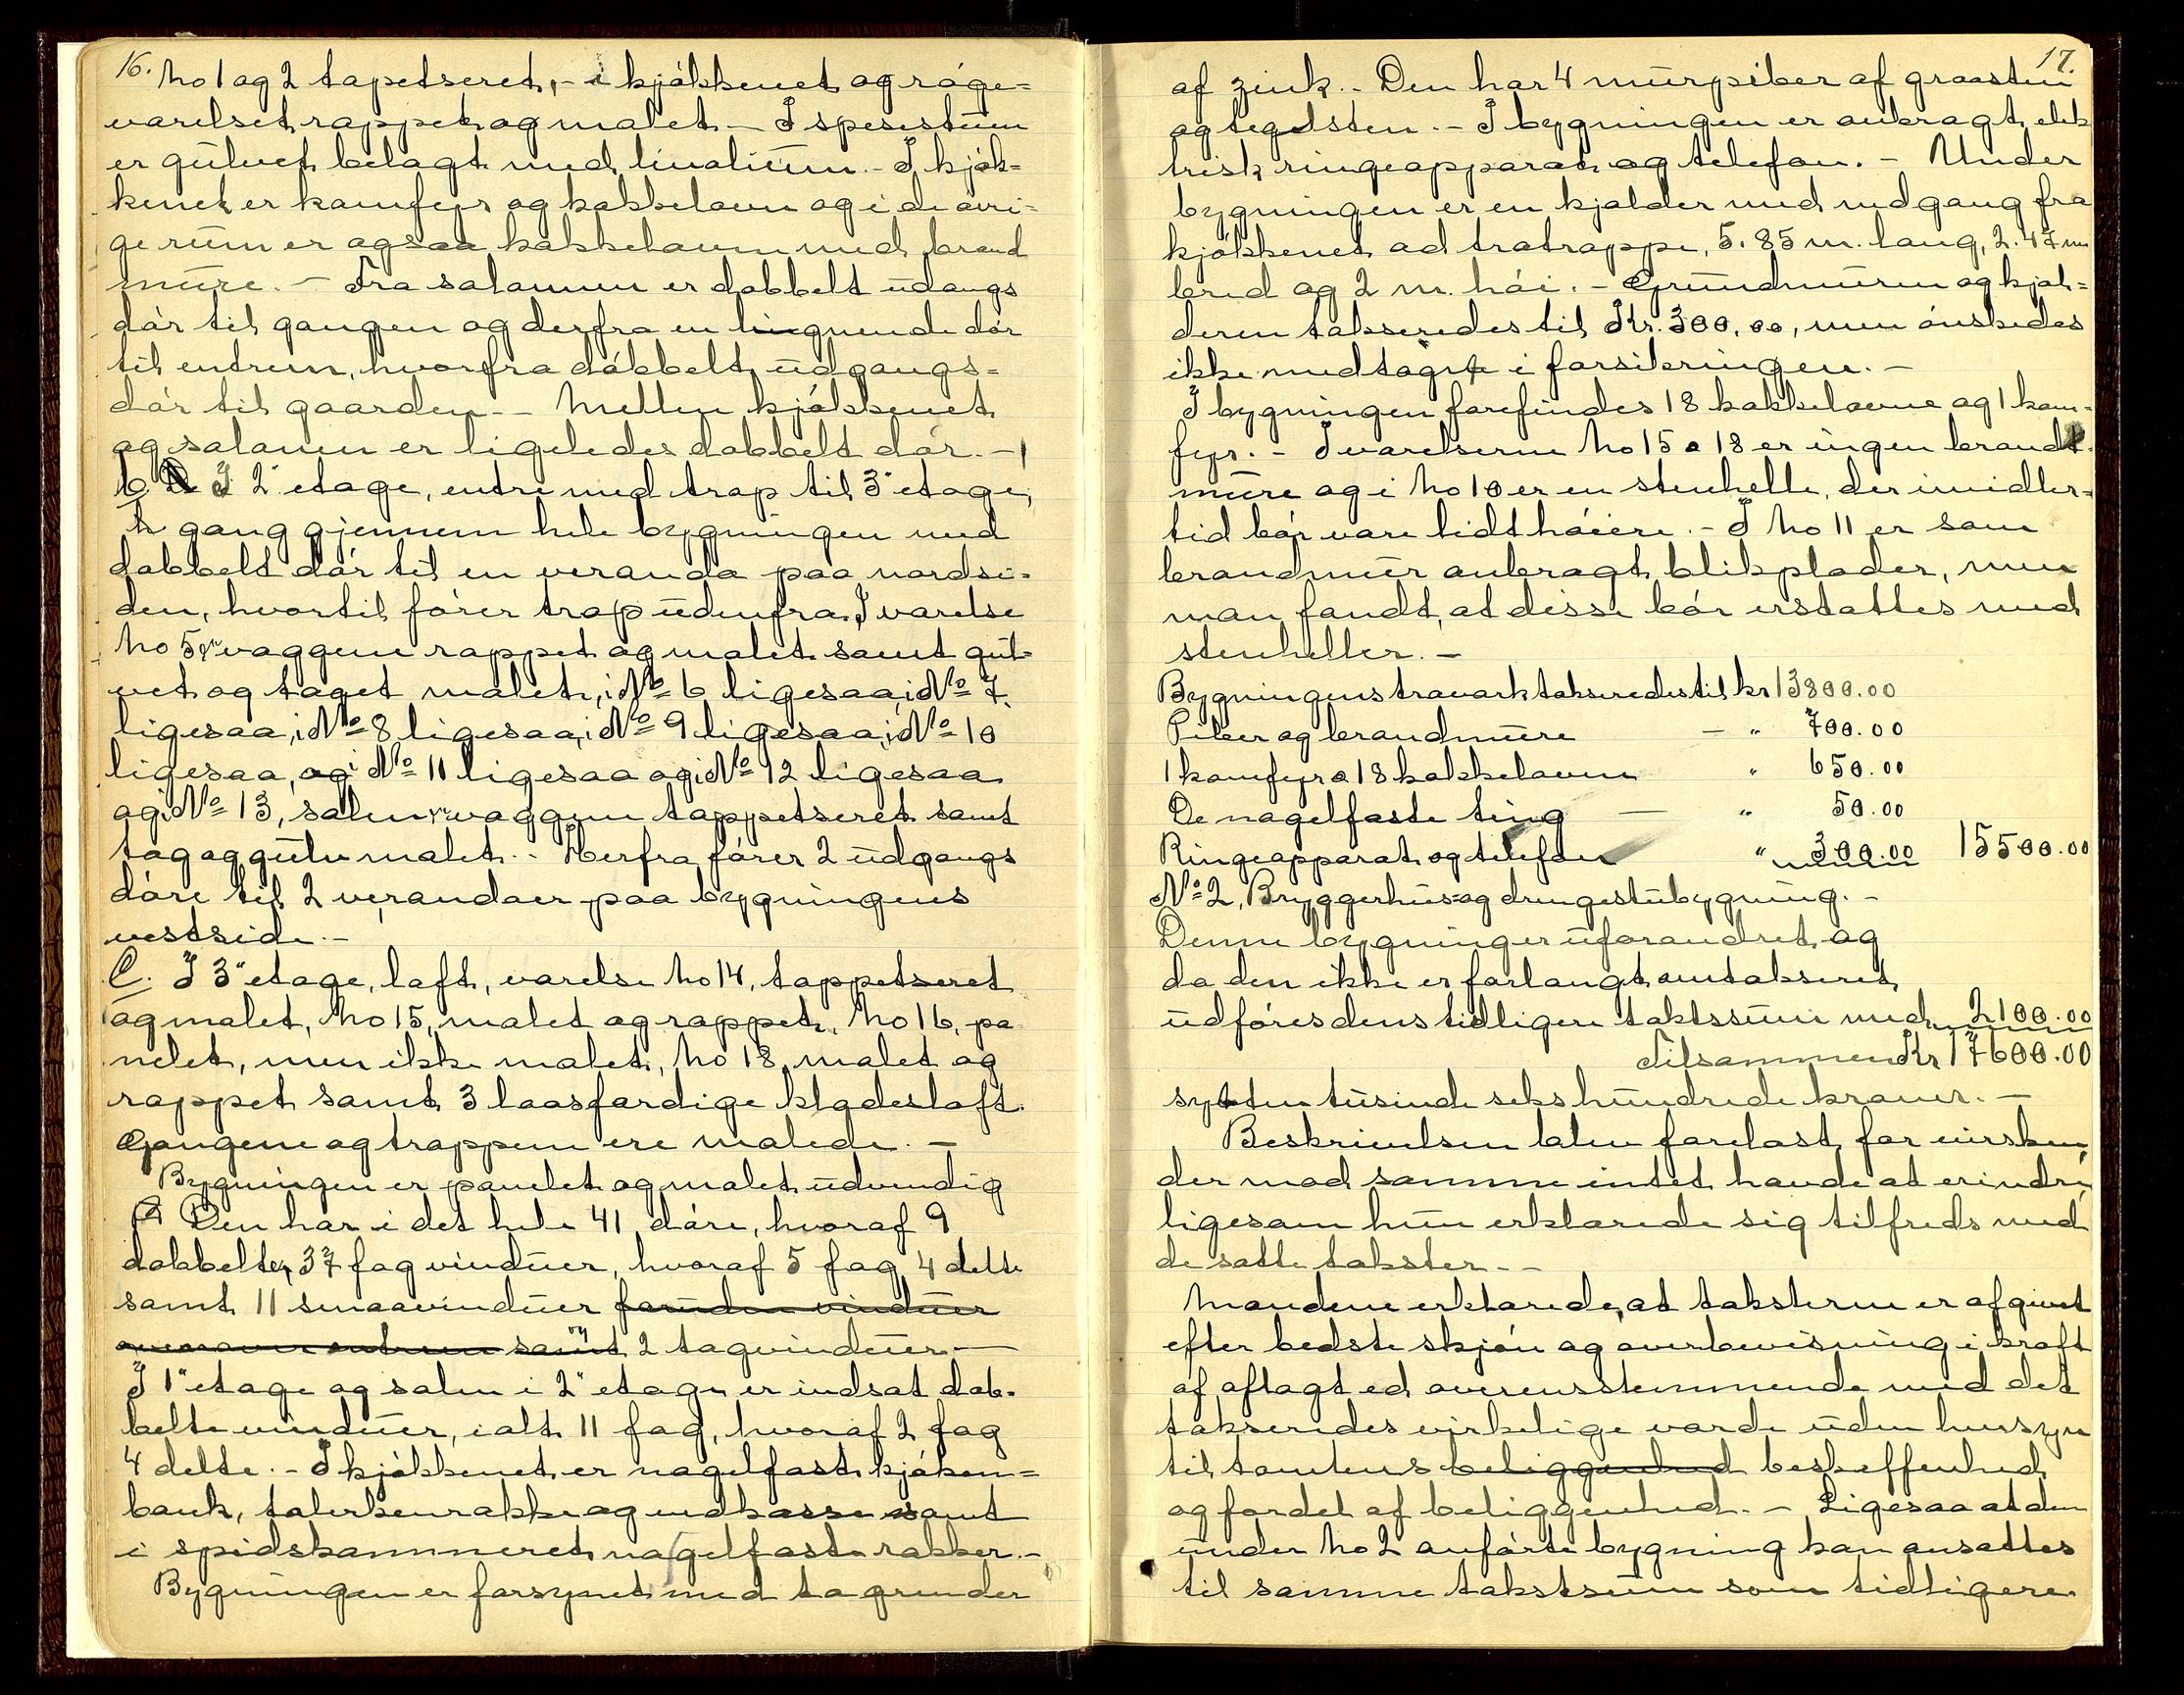 16.
No 1 og 2 tapetseret, - i kjøkkenet og røge=
værelset rappet og malet. - I spisestuen
er gulvet belagt med linolium. - I kjøk=
kenet er komfyr og kakkelovn og i de øvri=
ge rum er ogsaa kakkelovnn med brand
mure. - Fra salonnen er dobbelt udangs
dør til gangen og derfra en lignende dør
til entreen, hvorfra dobbelt udgangs=
dør til gaarden. - Mellen kjøkkenet
og salonen er ligeledes dobbelt dør. -
b I 2" etage, entre med trap til 3" etage,
gang gjennem hele bygningen med
dobbelt dør til en veranda paa nordsi=
den, hvortil fører trap udenfra. I værelse
No 5 er væggene rappet og malet samt gul=
vet og taget malet, i No 6 ligesaa, i No 7
ligesaa, i No 8 ligesaa, i No 9 ligesaa, i No 10
ligesaa, og i No 11 ligesaa og i No 12 ligesaa
og i No 13, salen er væggene tappetseret samt
tag og gulv malet. - Herfra fører 2 udgangs
døre til 2 verandaer paa bygningens
vestside. -
C. I 3" etage, loft, værelse No 14, tappetseret
og malet, No 15, malet og rappet, No 16, pa
nelet, men ikke malet, No 18, malet og
rappet samt 3 laasfærdige klædesloft.
Gangene og trappene ere malede. -
Bygningen er panelet og malet udvendig
Den har i det hele 41 døre, hvoraf 9
dobbelte, 37 fag vinduer, hvoraf 5 fag 4 delte
samt 11 smaavinduer foruden vinduer
ovenover entreen samt og 2 tagvinduer -
I 1" etage og salen i 2" etage er indsat dob-
belte vinduer, ialt 11 fag, hvoraf 2 fag
4 delte. - I kjøkkenet er nagelfast kjøken=
bænk, talerkenrække og vedkasse samt
i spidskammeret nagelfaste rækker. -
Bygningen er forsynet med tagrender
17.
af zink. - Den har 4 murpiber af graasten
og teglsten. - I bygningen er anbragt elek
trisk ringeapparat og telefon. - Under
bygningen er en kjælder med nedgang fra
kjøkkenet ad trætrappe, 5.85 m. lang, 2.47 m
bred og 2 m. høi. - Grundmuren og kjæl=
deren takseredes til Kr. 300,00, men ønskedes
ikke medtaget i forsikringen. -
I bygningen forefindes 18 kakkelovne og 1 kom=
fyr. - I værelserne No 15 a 18 er ingen brandt-
mure og i No 10 er en stenhelle, der imidler=
tid bør være lidt høiere. - I No 11 er som
brandmur anbragt blikplader, men
man fandt, at disse bør erstattes med
stenheller. -
Bygningens træværk takseredes til kr 13800.00
Piber og brandmure - " 700.00
1 komfyr a 18 kakkelovnn " 650.00
De nagelfaste ting - " 50.00
Ringeapparat og telefon " 300.00 15500.00
No 2, Bryggerhus= og drengestubygning. -
Denne bygning er uforandret, og
da den ikke er forlangt omtakseret,
udføres dens tidligere taktssum med 2100.00
Tilsammen Kr 17600.00
sytten tusinde seks hundrede kroner. -
Beskrivelsen blev forelæst for eiersken,
der mod samme intet havde at erindre,
ligesom hun erklærede sig tilfreds med
de satte takster. -
Mændene erklærede, at taksterne er afgivet
efter bedste skjøn og overbevisning i kraft
af aflagt ed overensstemmende med det
takseredes virkelige værde uden hensyn
til tomtens beliggenhed beskaffenhed
og fordel af beliggenhed. - Ligesaa at den
under No 2 anførte bygning kan ansættes
til samme takstsum som tidligere.